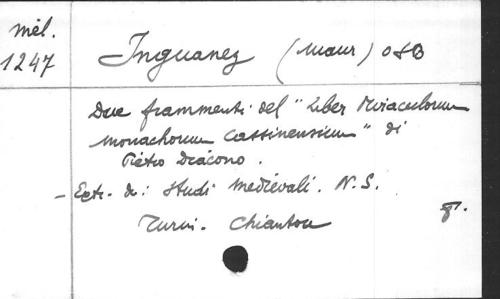 mél.
1247
Inguanez (Maur) OSB
Due frammenti del "Liber Miraculorum
monachorum Cassinensium" di
Pietro Diacono.
- Extr. de: Studi Medievali. N.S.
Turin. Chiantore